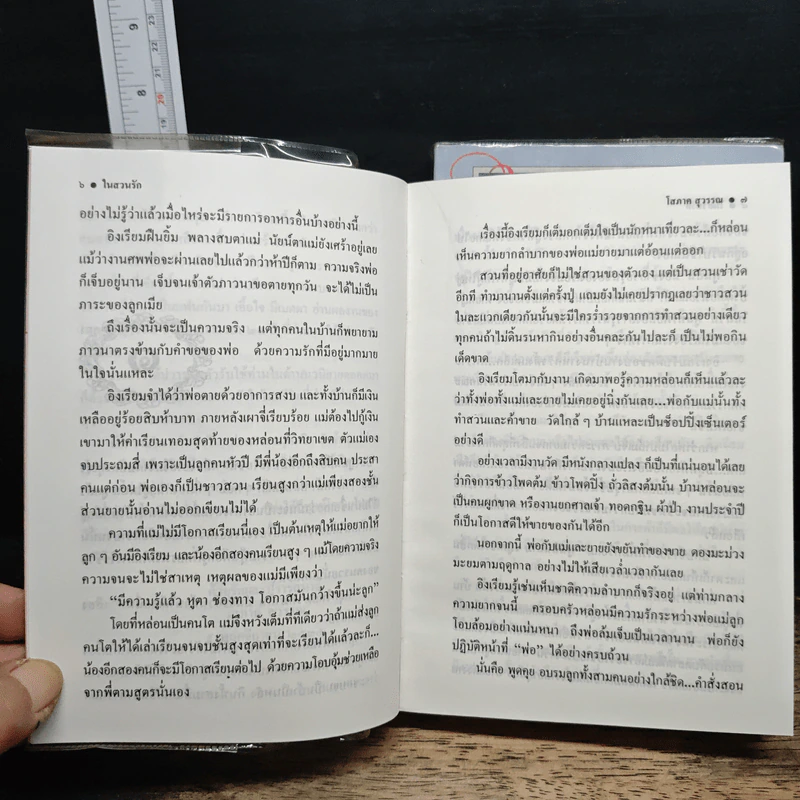 9
8
23
22
21
20
19
๖ ● ในสวนรัก
อย่างไม่รู้ว่าแล้วเมื่อไหร่จะมีรายการอาหารอื่นบ้างอย่างนี้
อิงเรียมฝืนยิ้ม พลางสบตาแม่ นัยน์ตาแม่ยังเศร้าอยู่เลย
แม้ว่างานศพพ่อจะผ่านเลยไปแล้วกว่าห้าปีก็ตาม ความจริงพ่อ
ก็เจ็บอยู่นาน เจ็บจนเจ้าตัวภาวนาขอตายทุกวัน จะได้ไม่เป็น
ภาระของลูกเมีย
ถึงเรื่องนั้นจะเป็นความจริง แต่ทุกคนในบ้านก็พยายาม
ภาวนาตรงข้ามกับคำขอของพ่อ ด้วยความรักที่มีอยู่มากมาย
ในใจนั่นแหละ
อิงเรียมจำได้ว่าพ่อตายด้วยอาการสงบ และทั้งบ้านก็มีเงิน
เหลืออยู่ร้อยสิบห้าบาท ภายหลังเผาจี่เรียบร้อย แม่ต้องไปกู้เงิน
เขามาให้ค่าเรียนเทอมสุดท้ายของหล่อนที่วิทยาเขต ตัวแม่เอง
จบประถมสี่ เพราะเป็นลูกคนหัวปี มีพี่น้องอีกถึงสิบคน ประสา
คนแต่ก่อน พ่อเองก็เป็นชาวสวน เรียนสูงกว่าแม่เพียงสองชั้น
ส่วนยายนั้นอ่านไม่ออกเขียนไม่ได้
ความที่แม่ไม่มีโอกาสเรียนนี่เอง เป็นต้นเหตุให้แม่อยากให้
ลูก ๆ อันมีอิงเรียม และน้องอีกสองคนเรียนสูง ๆ แม้โดยความจริง
ความจนจะไม่ใช่สาเหตุ เหตุผลของแม่มีเพียงว่า
“มีความรู้แล้ว หูตา ช่องทาง โอกาสมันกว้างขึ้นน่ะลูก”
โดยที่หล่อนเป็นคนโต แม่จึงหวังเต็มที่ทีเดียวว่าถ้าแม่ส่งลูก
คนโตให้ได้เล่าเรียนจนจบชั้นสูงสุดเท่าที่จะเรียนได้แล้วละก็...
น้องอีกสองคนก็จะมีโอกาสเรียนต่อไป ด้วยความโอบอุ้มช่วยเหลือ
จากพี่ตามสูตรนั่นเอง
โสภาค สุวรรณ ● ๗
เรื่องนี้อิงเรียมก็เต็มอกเต็มใจเป็นนักหนาเทียวละ...ก็หล่อน
เห็นความยากลำบากของพ่อแม่ยายมาแต่อ้อนแต่ออก
สวนที่อยู่อาศัยก็ไม่ใช่สวนของตัวเอง แต่เป็นสวนเช่าวัด
อีกที ทำมานานตั้งแต่ครั้งปู่ แถมยังไม่เคยปรากฏเลยว่าชาวสวน
ในละแวกเดียวกันนั้นจะมีใครร่ำรวยจากการทำสวนอย่างเดียว
ทุกคนถ้าไม่ดิ้นรนหากินอย่างอื่นคละกันไปละก็ เป็นไม่พอกิน
เด็ดขาด
อิงเรียมโตมากับงาน เกิดมาพอรู้ความหล่อนก็เห็นแล้วละ
ว่าทั้งพ่อทั้งแม่และยายไม่เคยอยู่นิ่งกันเลย...พ่อกับแม่นั้นทั้ง
ทำสวนและค้าขาย วัดใกล้ ๆ บ้านแหละเป็นช็อปปิ้งเซ็นเตอร์
อย่างดี
อย่างเวลามีงานวัด มีหนังกลางแปลง ก็เป็นที่แน่นอนได้เลย
ว่ากิจการข้าวโพดต้ม ข้าวโพดปิ้ง ถั่วลิสงต้มนั้น บ้านหล่อนจะ
เป็นคนผูกขาด หรืองานยกศาลเจ้า ทอดกฐิน ผ้าป่า งานประจำปี
ก็เป็นโอกาสดีให้ขายของกันได้อีก
นอกจากนี้ พ่อกับแม่และยายยังขยันทำของขาย ดองมะม่วง
มะยมตามฤดูกาล อย่างไม่ให้เสียเวล่ำเวลากันเลย
อิงเรียมรู้เช่นเห็นชาติความลำบากก็จริงอยู่ แต่ท่ามกลาง
ความยากจนนี้ ครอบครัวหล่อนมีความรักระหว่างพ่อแม่ลูก
โอบล้อมอย่างแน่นหนา ถึงพ่อล้มเจ็บเป็นเวลานาน พ่อก็ยัง
ปฏิบัติหน้าที่ “พ่อ” ได้อย่างครบถ้วน
นั่นคือ พูดคุย อบรมลูกทั้งสามคนอย่างใกล้ชิด...คำสั่งสอน